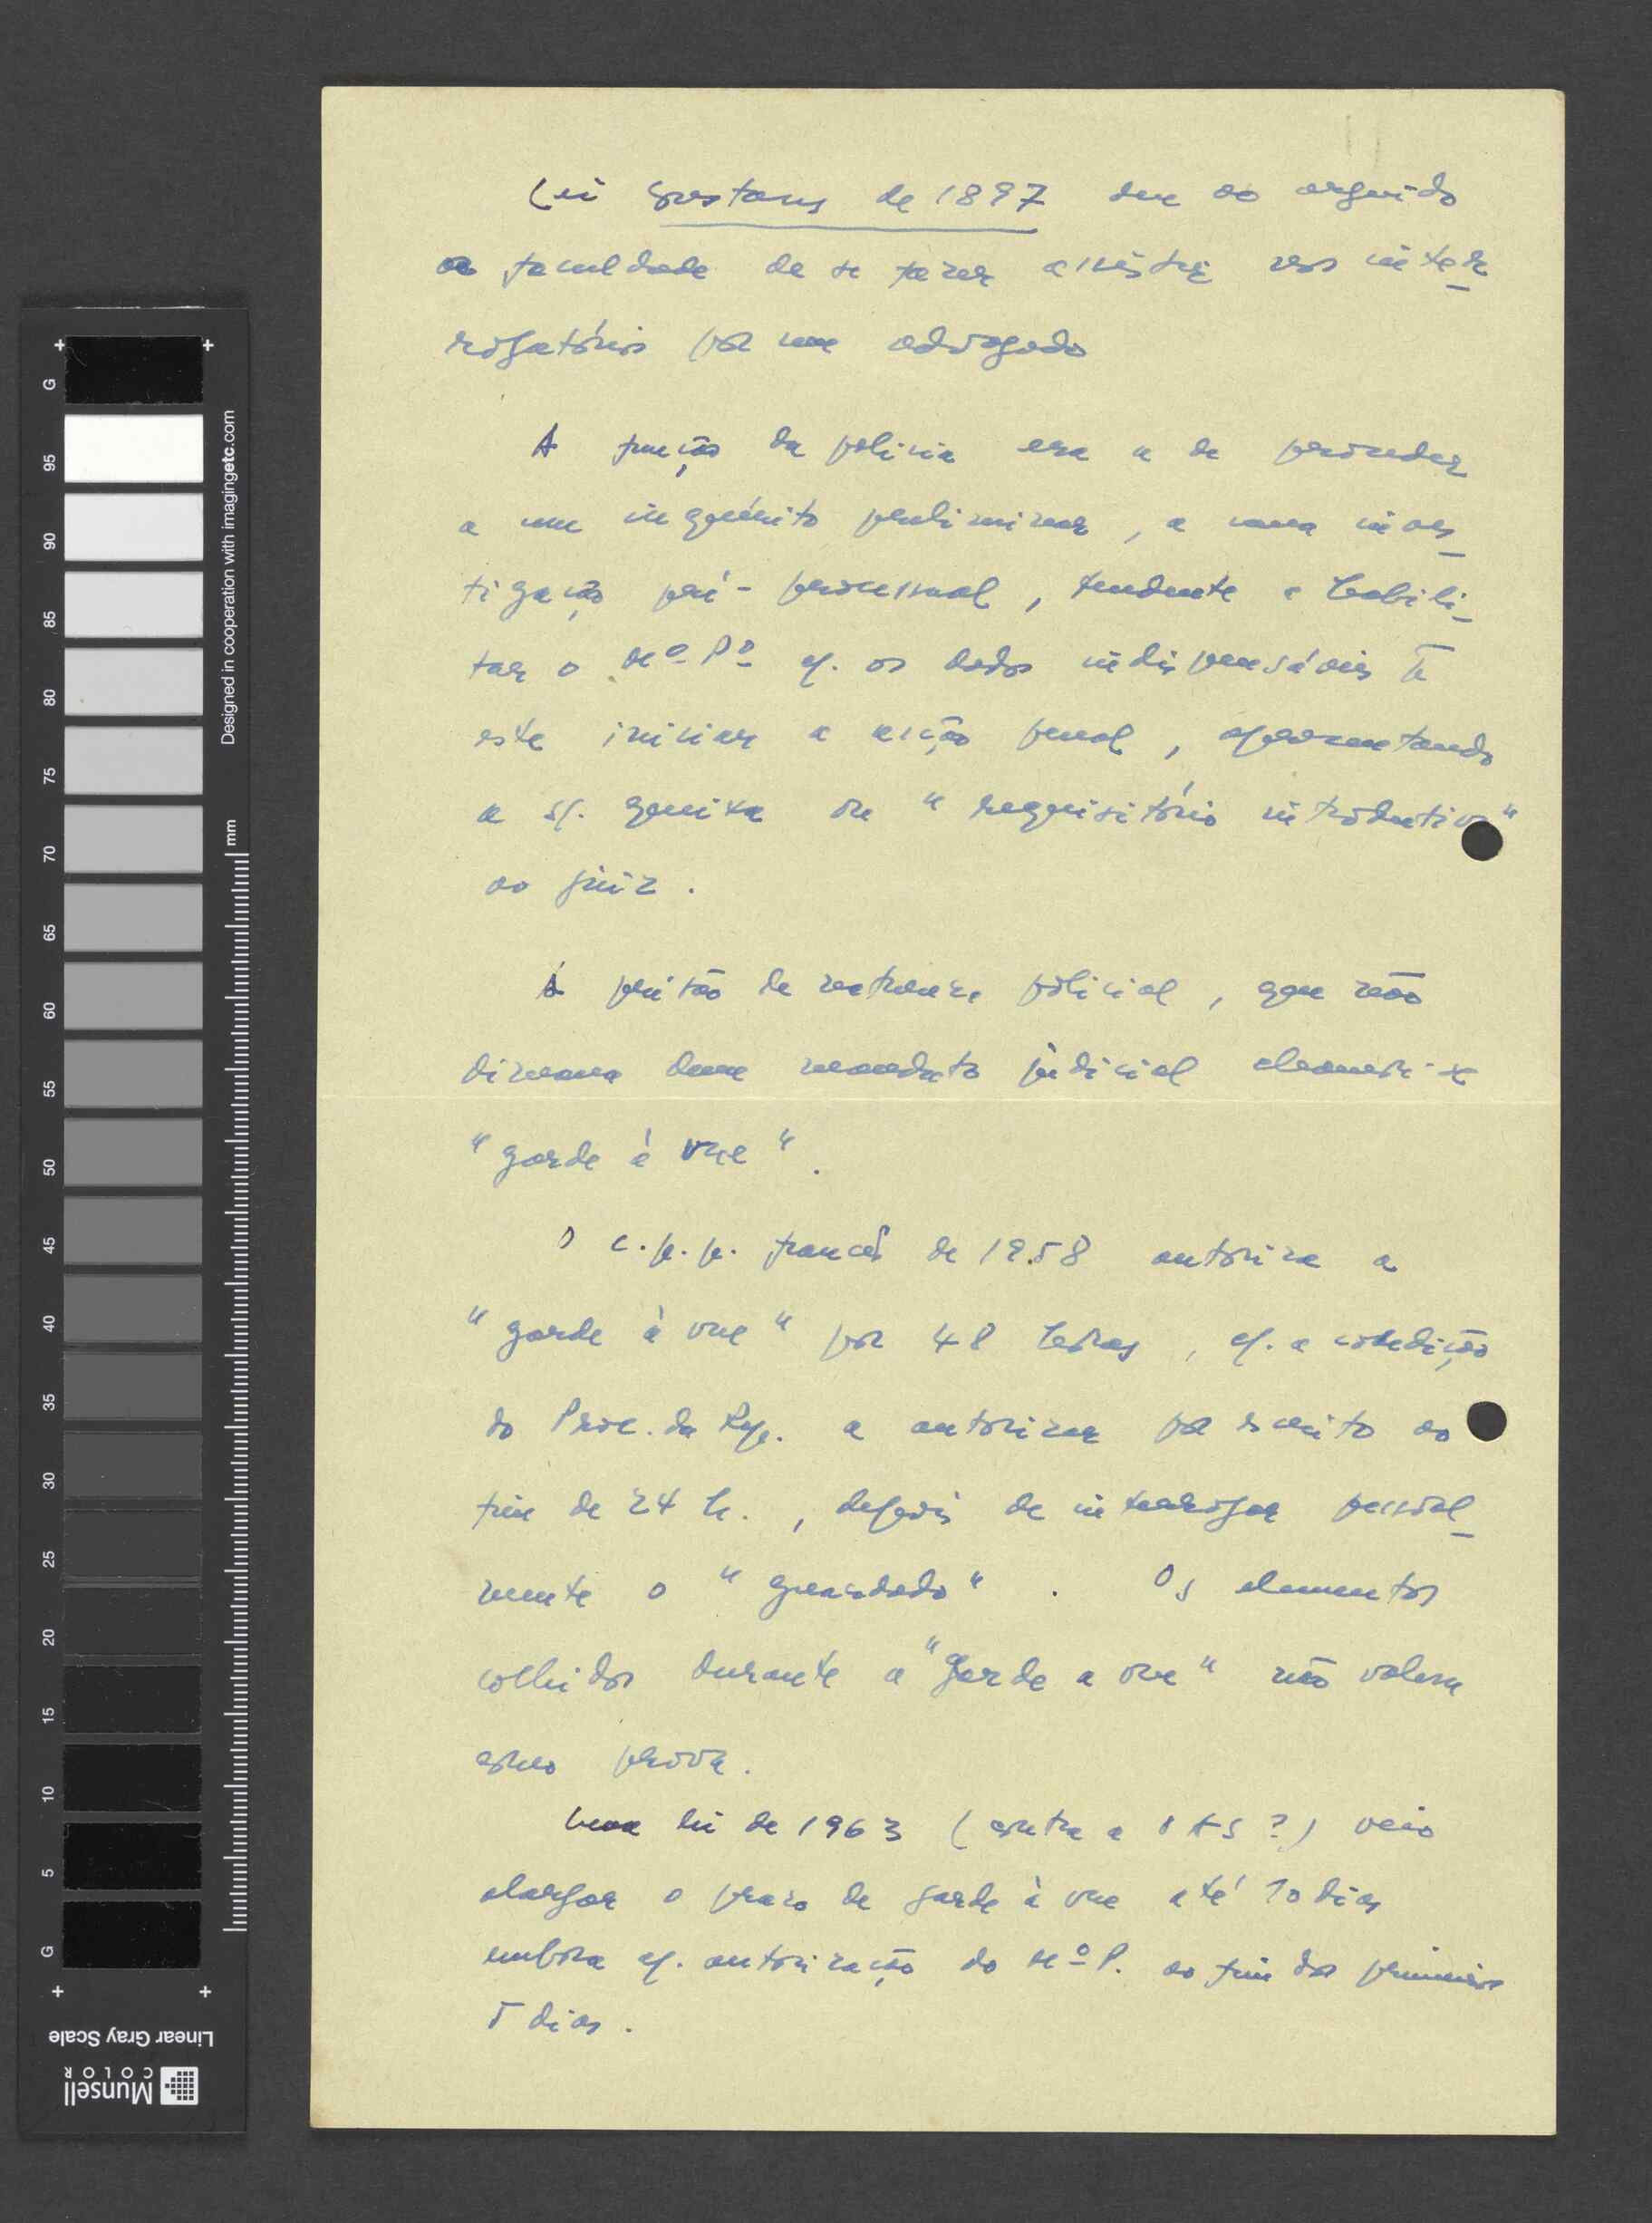 Lei Constans de 1897 deu ao arguido
a faculdade de se fazer assistir nos inter
rogatórios por um advogado
A função da polícia era a de proceder
a um inquérito preliminar, a uma inves
tigação pré-processual, tendente a habili
tar o Mº Pº c/. os dados indispensáveis
este iniciar a acção penal, apresentando
a s/. queixa ou "requisitório introdutivo"
ao juiz.
A prisão de natureza policial, que não
dimana dum mandato judicial chama-se
"garde à vue".
O c.p.p. francês de 1958 autoriza a
"garde à vue" por 48 horas, c/. a condição
do Proc. da Rep. a autorizar por escrito ao
fim de 24 h., depois de interrogar pessoal
mente o "guardado". Os elementos
colhidos durante a "garde a vue" não valem
como prova.
Uma lei de 1963 (contra a OAS?) veio
alargar o prazo de garde à vue até 10 dias
embora c/. autorização do Mº P. ao fim dos primeiros
5 dias.
G
95
90
85
80
75
70
65
60
55
50
45
40
35
30
25
20
15
10
5
G
mm
Designed in cooperation with imagingetc.com
Linear Gray Scale
Munsell
COLOR